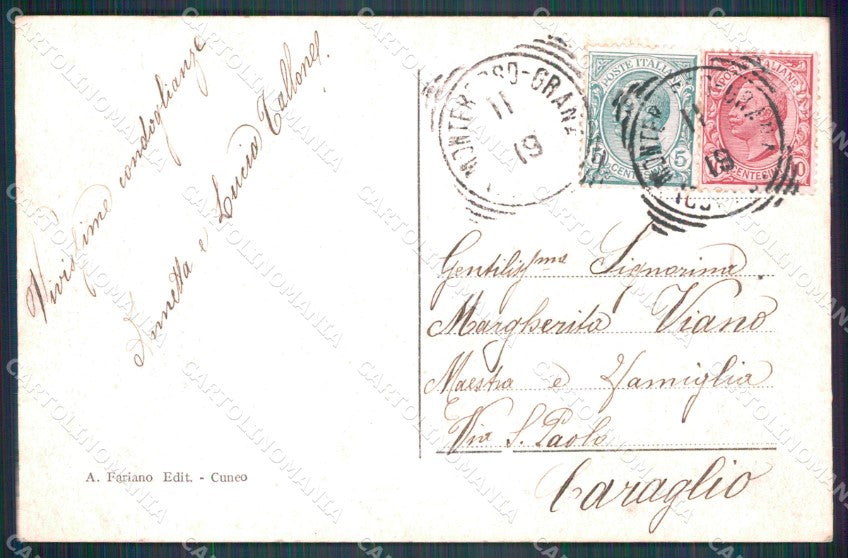 Vivissime condoglianze
Annetta e Lucia Tallone
MONTEROSSO-GRANA
11
19
POSTE ITALIANE
5
CENTESIMI
POSTE ITALIANE
10
CENTESIMI
Gentiliss.me Signorina
Margherita Viano
Maestra e Famiglia
Via S. Paolo
Caraglio
A. Fariano Edit. - Cuneo
CARTOLINOMANIA